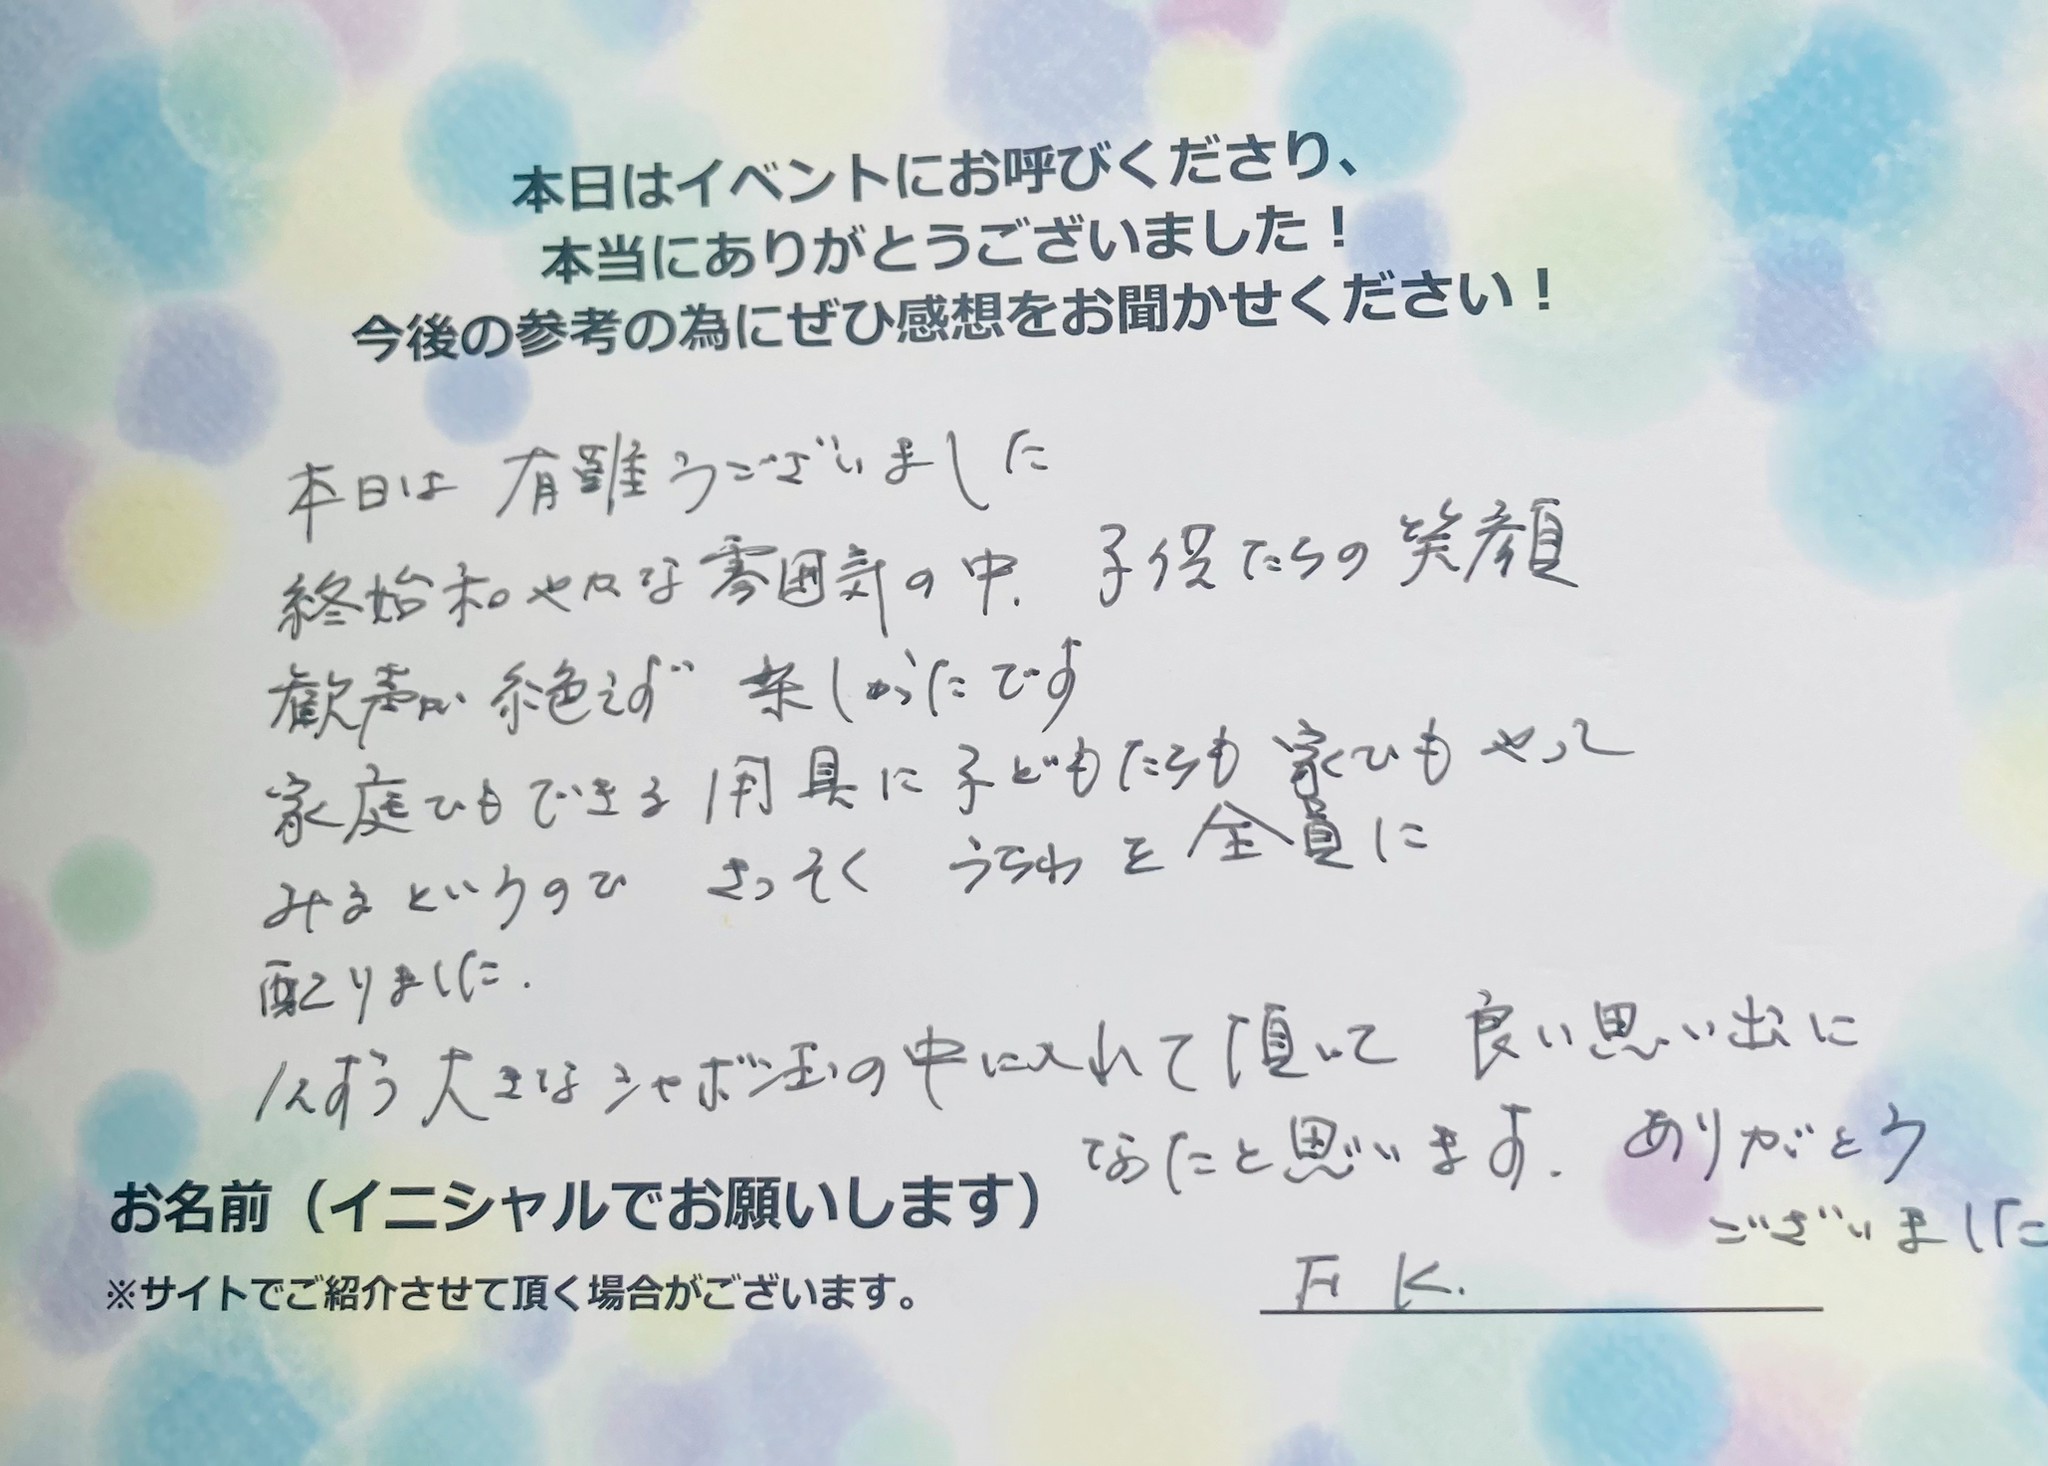 本日はイベントにお呼びくださり、
本当にありがとうございました！
今後の参考の為にぜひ感想をお聞かせください！
本日は有難うございました
終始和やかな雰囲気の中、子供たちの笑顔
歓声が絶えず楽しかったです
家庭でもできる用具に子どもたちも家でもやって
みるというのでさっそくうちわを全員に
配りました.
大きなシャボン玉の中に入れて頂いて良い思い出に
なったと思います. ありがとう
ございました
お名前（イニシャルでお願いします）
※サイトでご紹介させて頂く場合がございます。
K.